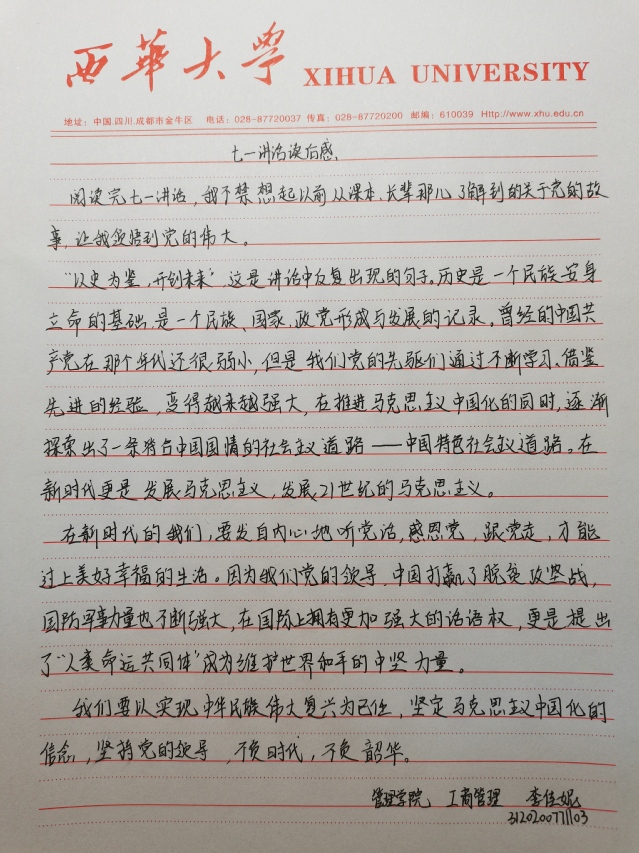 西華大學 XIHUA UNIVERSITY
地址：中国.四川.成都市金牛区 电话：028-87720037 传真：028-87720200 邮编：610039 Http://www.xhu.edu.cn
七一讲话读后感
阅读完七一讲话，我不禁想起以前从课本、长辈那儿了解到的关于党的故
事，让我领悟到党的伟大。
“以史为鉴，开创未来”，这是讲话中反复出现的句子。历史是一个民族安身
立命的基础，是一个民族、国家、政党形成与发展的记录。曾经的中国共
产党在那个年代还很弱小，但是我们党的先驱们通过不断学习、借鉴
先进的经验，变得越来越强大，在推进马克思主义中国化的同时，逐渐
探索出了一条符合中国国情的社会主义道路——中国特色社会主义道路。在
新时代更是发展马克思主义，发展21世纪的马克思主义。
在新时代的我们，要发自内心地听党话，感恩党，跟党走，才能
过上美好幸福的生活。因为我们党的领导，中国打赢了脱贫攻坚战，
国防军事力量也不断强大，在国际上拥有更加强大的话语权，更是提出
了“人类命运共同体”成为维护世界和平的中坚力量。
我们要以实现中华民族伟大复兴为己任，坚定马克思主义中国化的
信念，坚持党的领导，不负时代，不负韶华。
管理学院 工商管理 李佳妮
3120200771103